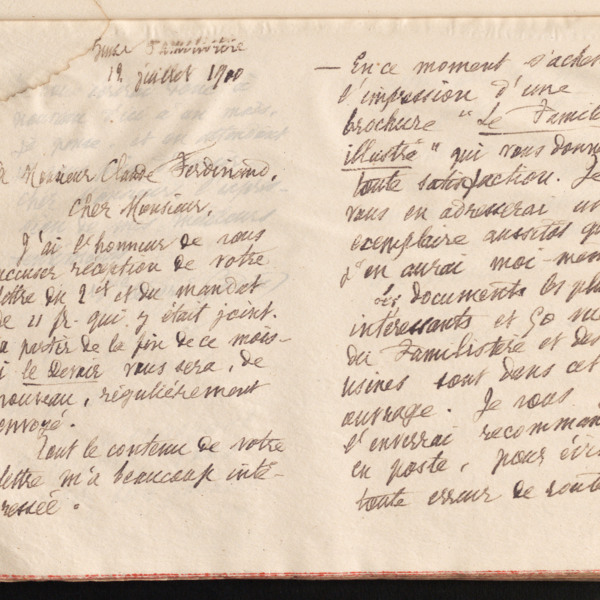 Guise Familistère
12 juillet 1900
A Monsieur Claude Ferdinand,
Cher Monsieur,
J'ai l'honneur de vous
accuser réception de votre
lettre du 2 ct et du mandat
de 21 fr. qui y était joint.
A partir de la fin de ce mois-
ci le Devoir vous sera, de
nouveau, régulièrement
envoyé.
Tout le contenu de votre
lettre m'a beaucoup inté-
ressée.
— En ce moment s'achè
l'impression d'une
brochure "Le Famili
illustré" qui vous donn
toute satisfaction. Je
vous en adresserai un
exemplaire aussitôt qu
j'en aurai moi-mêm
les documents les plu
intéressants et 50 vu
du Familistère et des
usines sont dans cet
ouvrage. Je vous
l'enverrai recomman
en poste, pour évi
toute erreur de route